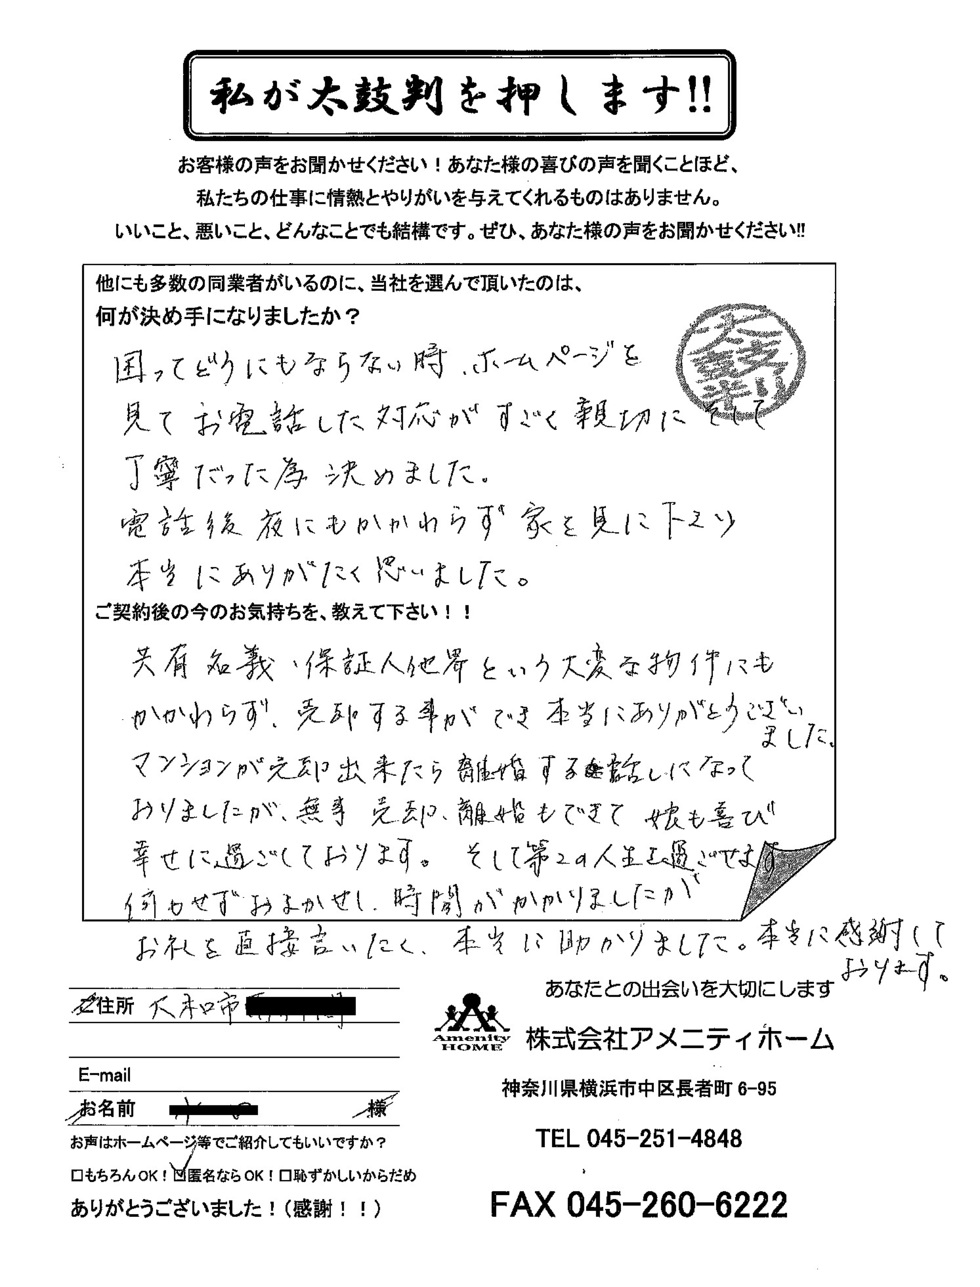 私が太鼓判を押します!!
お客様の声をお聞かせください！あなた様の喜びの声を聞くことほど、
私たちの仕事に情熱とやりがいを与えてくれるものはありません。
いいこと、悪いこと、どんなことでも結構です。ぜひ、あなた様の声をお聞かせください!!
他にも多数の同業者がいるのに、当社を選んで頂いたのは、
何が決め手になりましたか？
太鼓判
困ってどうにもならない時、ホームページを
見てお電話した対応がすごく親切にそして
丁寧だった為決めました。
電話後夜にもかかわらず家を見に下さり
本当にありがたく思いました。
ご契約後の今のお気持ちを、教えて下さい！！
共有名義、保証人他界という大変な物件にも
かかわらず、売却する事ができ本当にありがとうござい
ました。
マンションが売却出来たら離婚する話しになって
おりましたが、無事売却、離婚もできて娘も喜び
幸せに過ごしております。そして第2の人生を過ごせます
何もせずおまかせし、時間がかかりましたが
お礼を直接言いたく、本当に助かりました。本当に感謝して
おります。
ご住所 大和市
E-mail
お名前 様
お声はホームページ等でご紹介してもいいですか？
□もちろんOK！☑匿名ならOK！□恥ずかしいからだめ
ありがとうございました！（感謝！！）
あなたとの出会いを大切にします
Amenity
HOME
株式会社アメニティホーム
神奈川県横浜市中区長者町 6-95
TEL 045-251-4848
FAX 045-260-6222